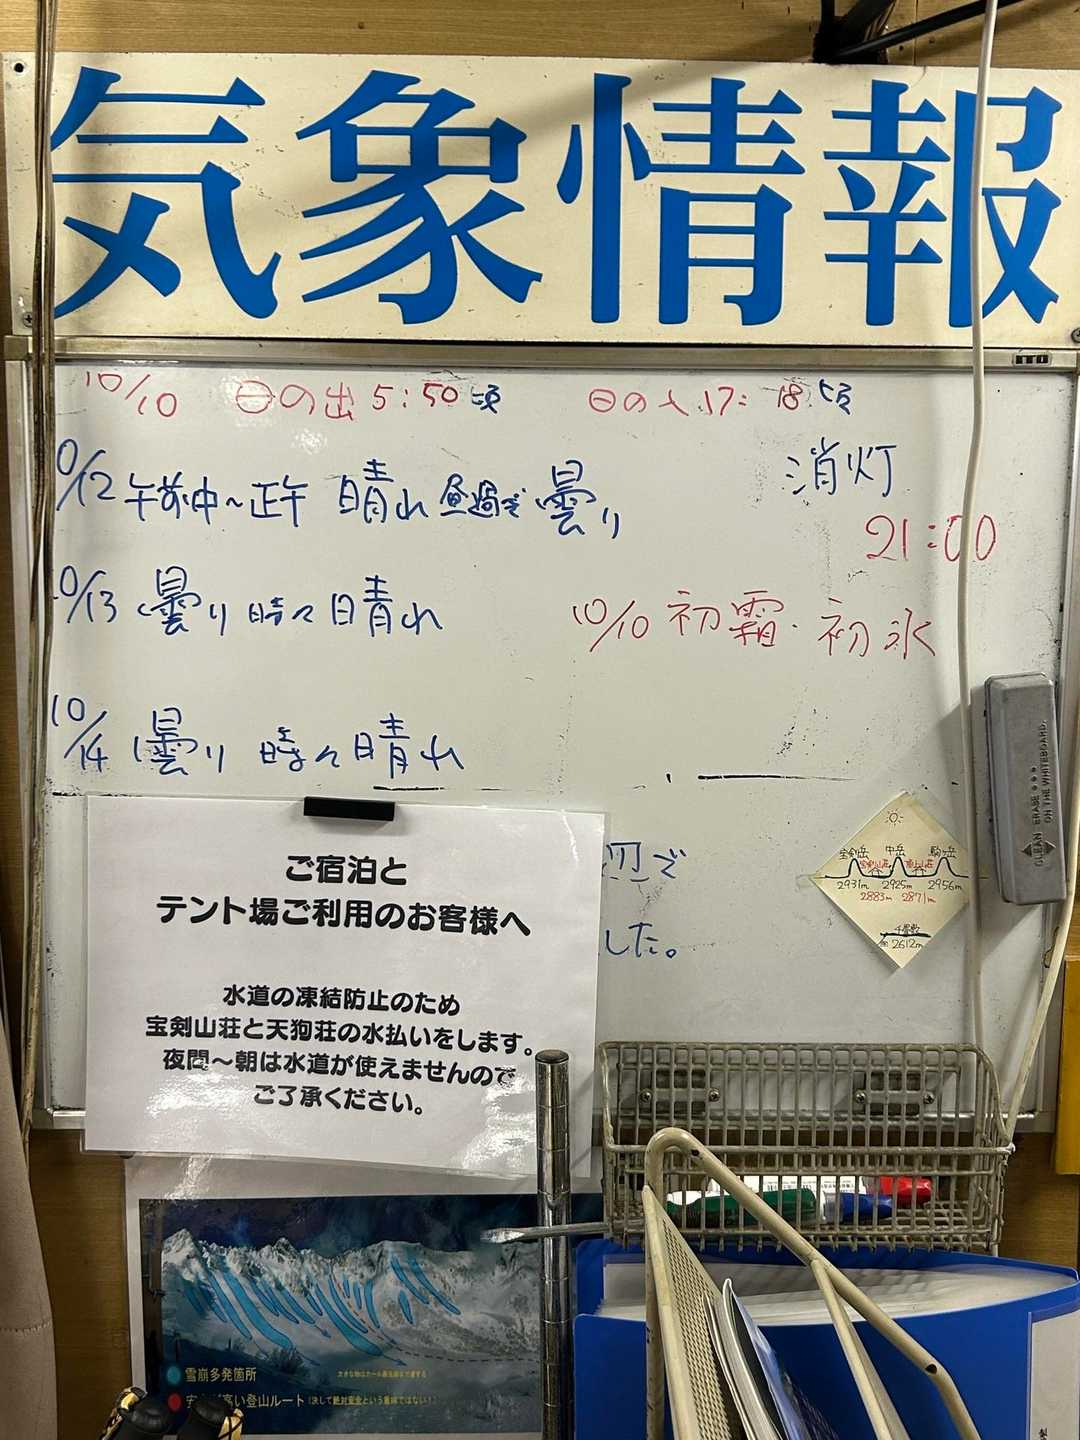 気象情報
ITO
10/10 日の出 5:50頃 日の入 17:18頃
10/12 午前中〜正午 晴れ 昼過ぎ 曇り
消灯
21:00
10/13 曇り 時々 晴れ
10/10 初霜・初氷
10/14 曇り 時々 晴れ
CLEAN ERASE
ON THE WHITEBOARD
辺で
した。
宝剣岳 中岳 駒ヶ岳
宝剣山荘 頂上山荘
2931m 2925m 2956m
2883m 2871m
千畳敷
2612m
ご宿泊と
テント場ご利用のお客様へ
水道の凍結防止のため
宝剣山荘と天狗荘の水払いをします。
夜間〜朝は水道が使えませんので
ご了承ください。
雪崩多発箇所
高い登山ルート（決して絶対安全という意味ではない！）